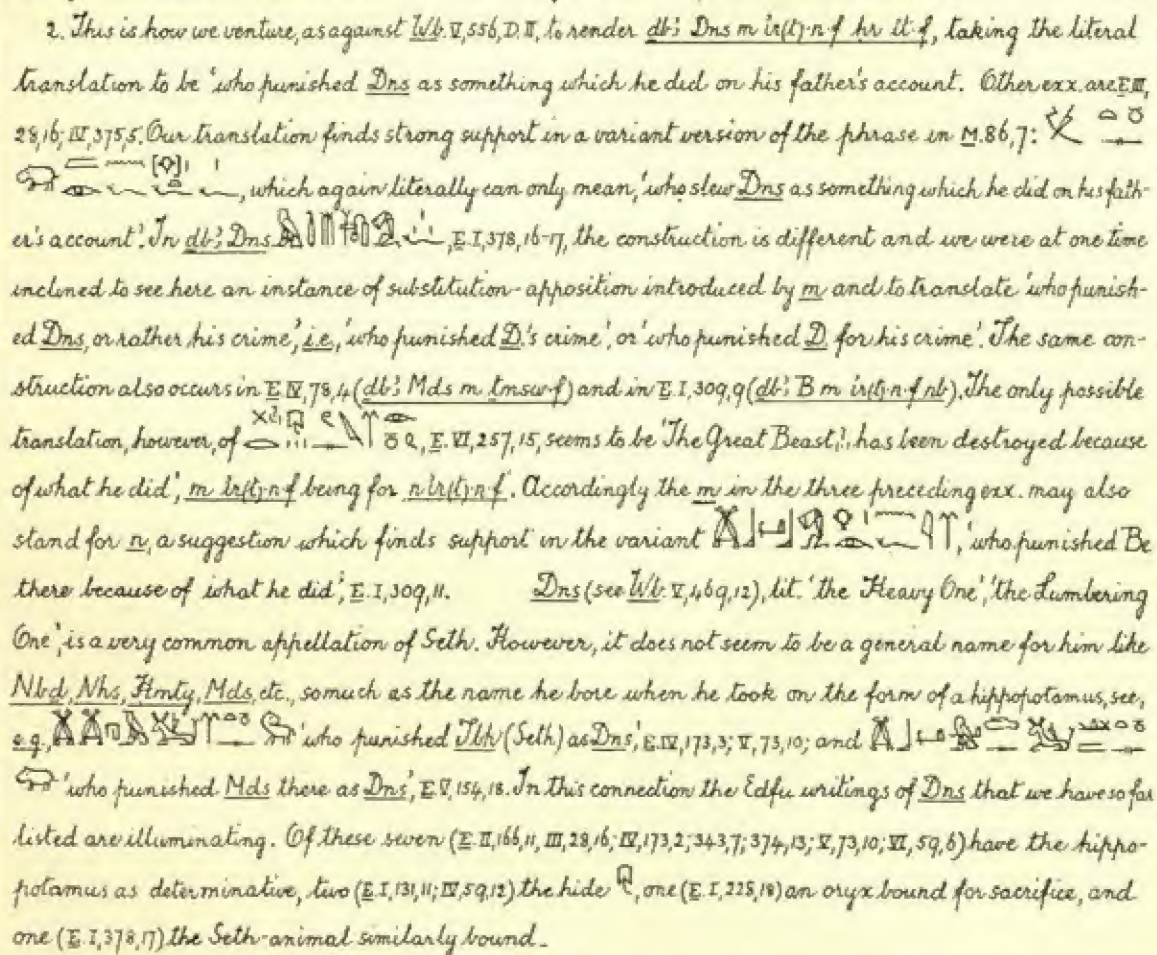 2. This is how we venture, as against Wb. V, 556, D. II, to render dbꜣ Dns m ir(t)·n·f ḥr it·f, taking the literal
translation to be 'who punished Dns as something which he did on his father's account. Other exx. are E. III,
28,16; IV, 375,5. Our translation finds strong support in a variant version of the phrase in M. 86,7:
, which again literally can only mean, 'who slew Dns as something which he did on his fath-
er's account'. In dbꜣ Dns , E. I, 378, 16-17, the construction is different and we were at one time
inclined to see here an instance of substitution-apposition introduced by m and to translate 'who punish-
ed Dns, or rather his crime', i.e., 'who punished D.'s crime', or 'who punished D. for his crime'. The same con-
struction also occurs in E. IV, 78,4 (dbꜣ Mds m tmsw·f) and in E. I, 309, 9 (dbꜣ B m ir(t)·n·f nb). The only possible
translation, however, of , E. VI, 257, 15, seems to be 'The Great Beast, has been destroyed because
of what he did', m ir(t)·n·f being for n ir(t)·n·f. Accordingly the m in the three preceding exx. may also
stand for n, a suggestion which finds support in the variant , 'who punished Be
there because of what he did', E. I, 309, 11. Dns (see Wb. V, 469, 12), lit. 'the Heavy One', 'the Lumbering
One', is a very common appellation of Seth. However, it does not seem to be a general name for him like
Nbd, Nhs, Mds, etc., so much as the name he bore when he took on the form of a hippopotamus, see,
e.g., 'who punished (Seth) as Dns', E. IV, 173, 3; V, 73, 10; and
'who punished Mds there as Dns', E. V, 154, 18. In this connection the Edfu writings of Dns that we have so far
listed are illuminating. Of these seven (E. II, 166, 11, III, 28, 16; IV, 173, 2; 343, 7; 374, 13; V, 73, 10; VI, 59, 6) have the hippo-
potamus as determinative, two (E. I, 131, 11; IV, 59, 12) the hide , one (E. I, 225, 18) an oryx bound for sacrifice, and
one (E. I, 378, 17) the Seth-animal similarly bound.